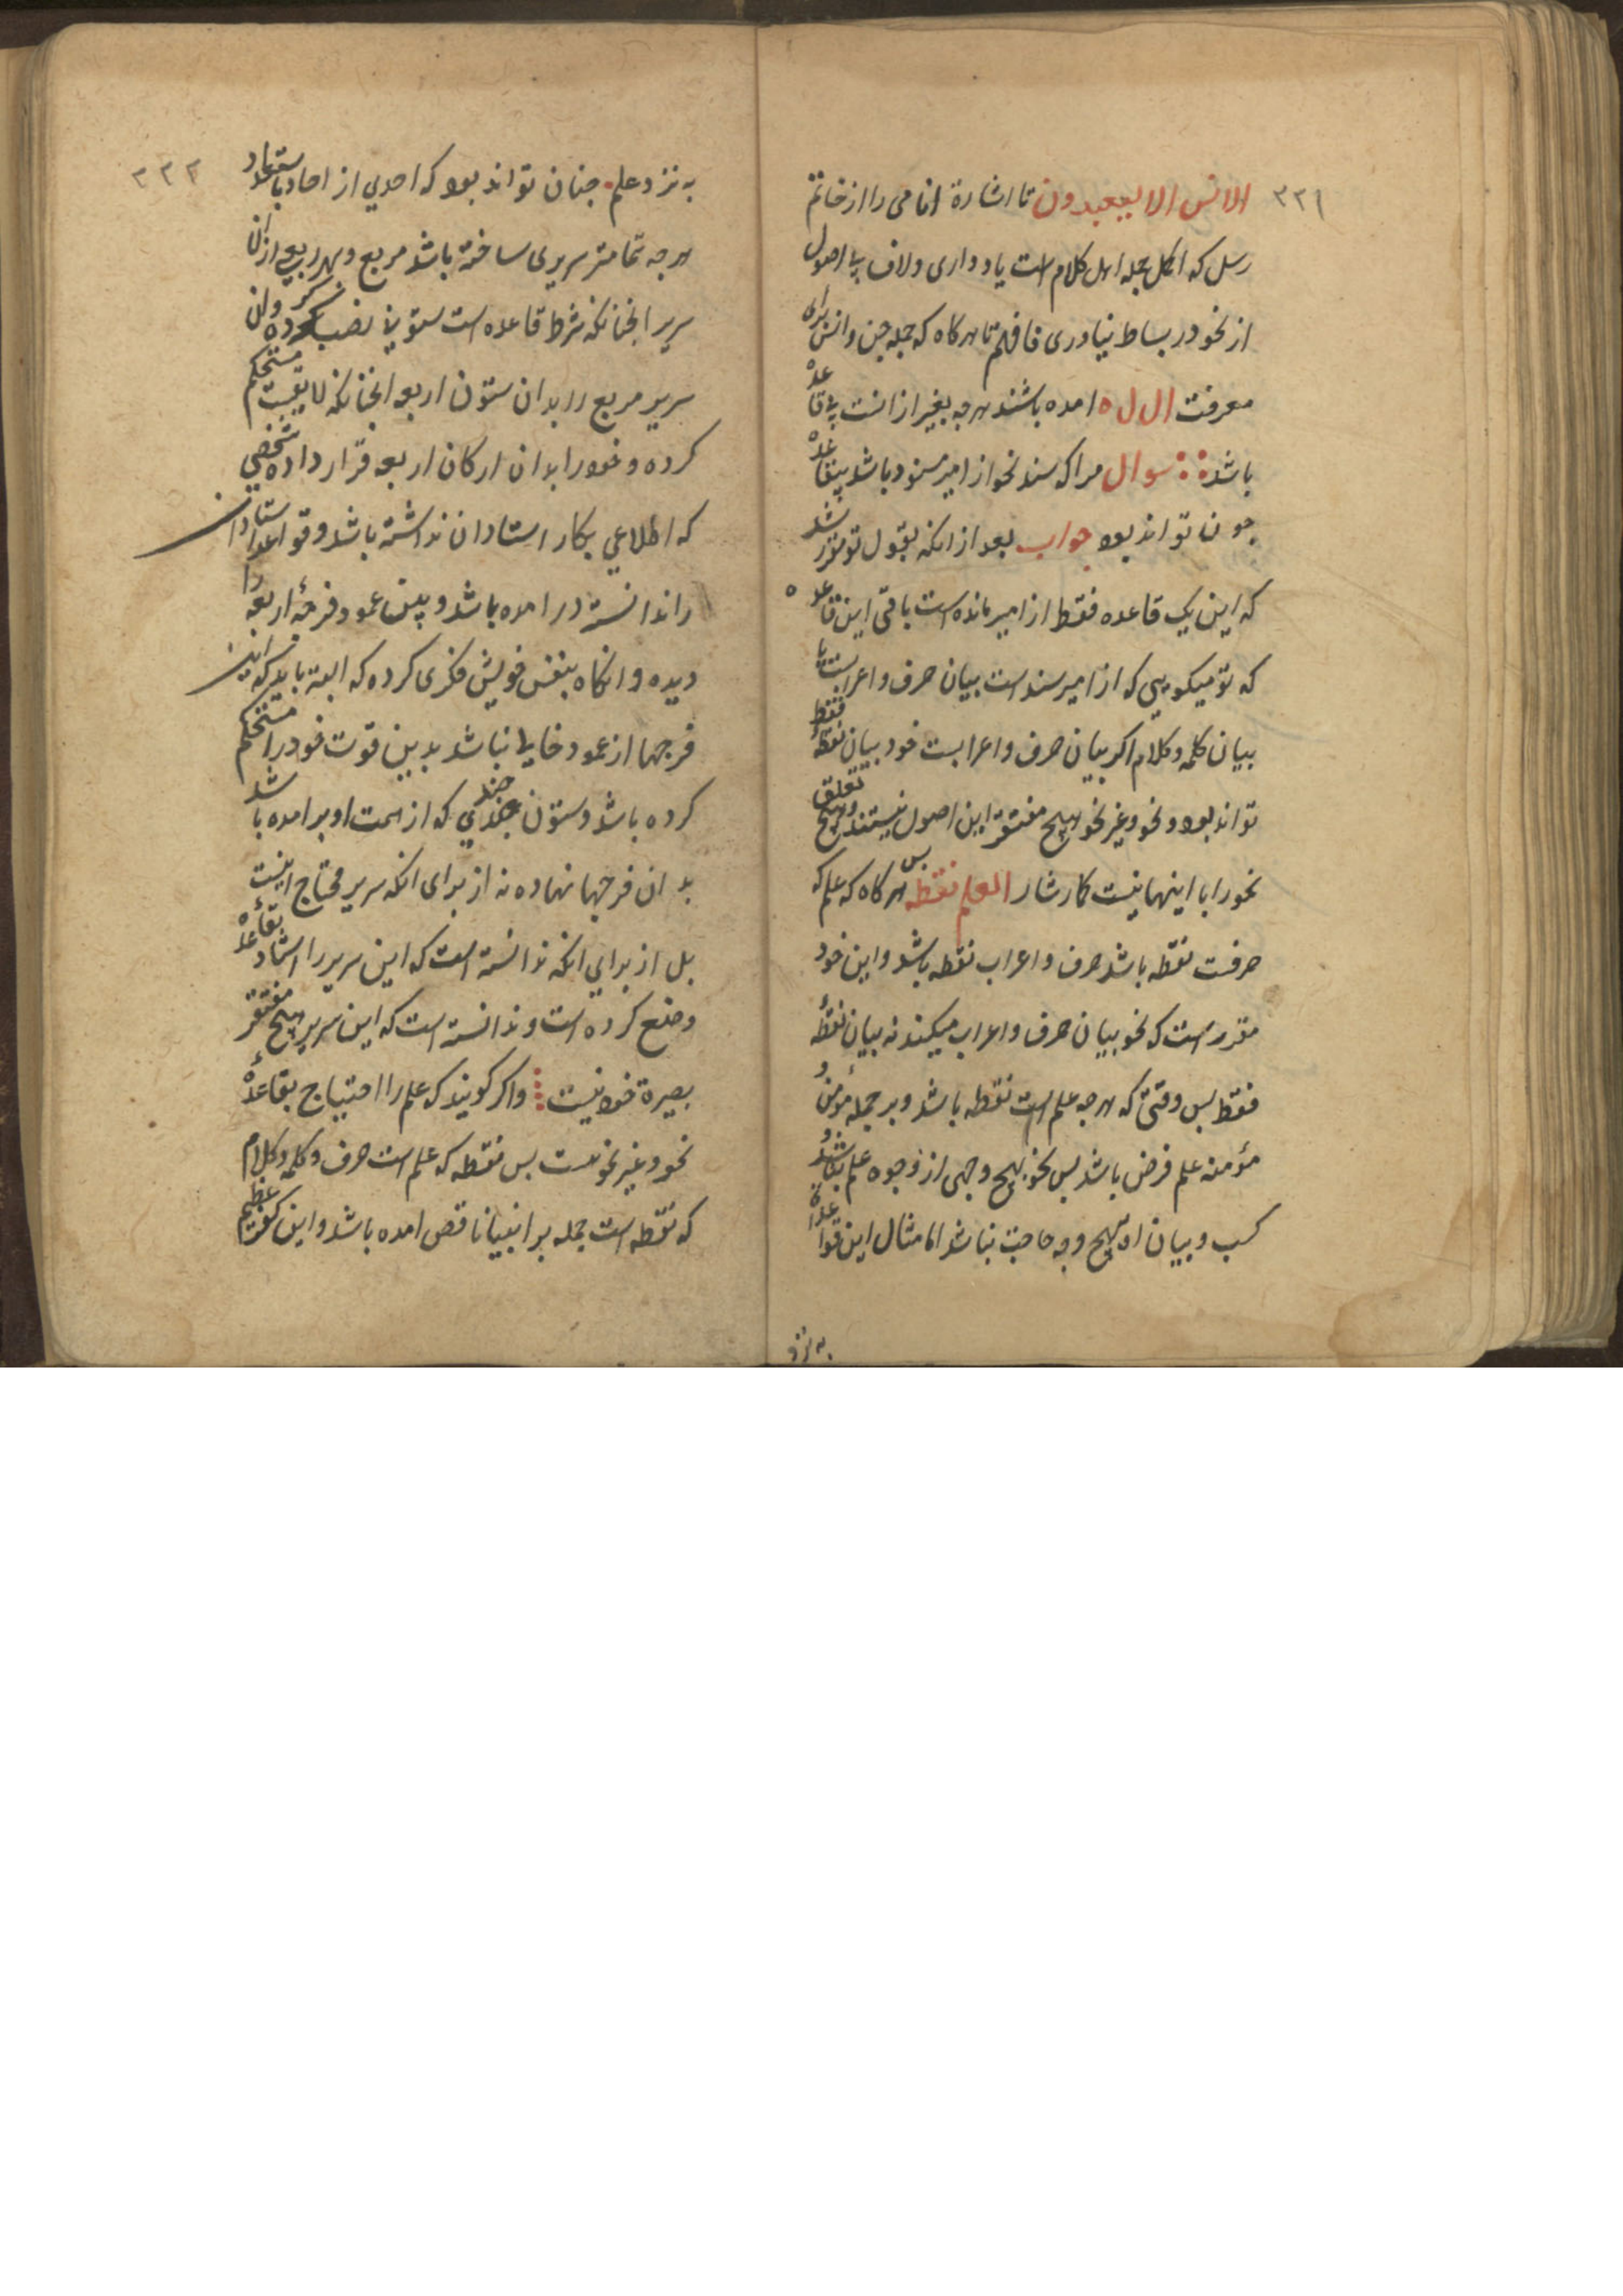 ۳۲۱
الانس الا لیعبدون تا اشارة انا می را از خاتم
رسل که اکمل جمله اهل کلام است یاد داری و لاف بی اصول
از نحو در بساط نیاوری فافهم تا هرکاه که جمله جن و انس برای
معرفت ال ل ه امده باشند هرجه بغیر از انست بی قاعده
باشد سوال مرا که سند نحو از امیر سنود باشد بیقاعده
جون تواند بود جواب بعد از انکه بقول تو مقرر شد
که این یک قاعده فقط از امیر مانده است باقی این قاعده
که تو میکویی که از امیر سند است بیان حرف و اعرابست یا
بیان کلمه و کلام اکر بیان حرف و اعرابست خود بیان نقطه فقط
تواند بود و نحو و غیر نحو هیچ مفتقر این اصول نیستند و هیچ تعلق
نحو را با اینها نیست کارشار العلم نقطه بس هرکاه که علم که
حرفست نقطه باشد حرف و اعراب نقطه باشد و این خود
مقرر است که نحو بیان حرف و اعراب میکند نه بیان نقطهٔ
فقط بس وقتی که هرجه علم است نقطه باشد و بر جملهٔ مؤمن و
مؤمنه علم فرض باشد بس نحو بهیچ وجهی از وجوه علم نباشد و
کسب و بیان او بهیچ وجه حاجت نباشد اما مثال این قواعد
به نزد
۳۲۲
به نزد علم جنان تواند بود که احدی از احاد باستعداد
هرجه تمامتر سریری ساخته باشد مربع و بهر ربعی از ان
سریر انجنانکه شرط قاعده است ستونی نصب کرده و ان
سریر مربع را بدان ستون اربعه انجنانکه لایقست مستحکم
کرده و خود را بدان ارکان اربعه قرار داده شخصی
که اطلاعی بکار استادان نداشته باشد و قواعد استادان
را ندانسته در امده باشد و بین عمود فرجهٔ اربعه را
دیده و انکاه بنفس خویش فکری کرده که البته باید که این
فرجها از عمود خالی نباشد بدین قوت خود را مستحکم
کرده باشد و ستون جندی که از سمت او بر امده باشد
بدان فرجها نهاده نه از برای انکه سریر محتاج اینست
بل از برای انکه ندانسته است که این سریر را استاد بقاعده
وضع کرده است و ندانسته است که این سریر بهیچ مفتقر
بصیرة خود نیست واکر کویند که علم را احتیاج بقاعدهٔ
نحو و غیر نحو هست بس نقطه که علم است حرف و کلمه و کلام
که نقطه است جمله بر انبیا ناقص امده باشد و این کفریست عظیم